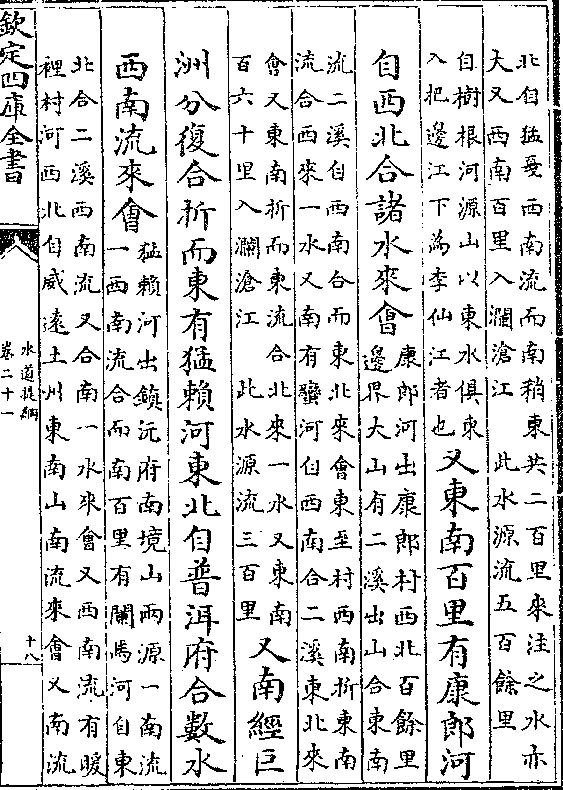 北自猛戞西南流而南稍東共二百里來注之水亦
大又西南百里入瀾滄江 此水源流五百餘里
自樹根河源山以東水俱東
入把邊江下為李仙江者也
又東南百里有康郎河
自西北合諸水來會
康郎河出康郎村西北百餘里
邊界大山有二溪出山合東南
流二溪自西南合而東北來會東至村西南折東南
流合西來一水又南有蠻河自西南合二溪東北來
會又東南折而東流合北來一水又東南
百六十里入瀾滄江 此水源流三百里
又南經巨
洲分復合折而東有猛賴河東北自普洱府合數水
西南流來會
猛賴河出鎮沅府南境山兩源一南流
一西南流合而南百里有闌馬河自東
北合二溪西南流又合南一水來會又西南流有暖
裡村河西北自威遠土州東南山南流來會又南流
欽定四庫全書
水道提綱
卷二十一
十八